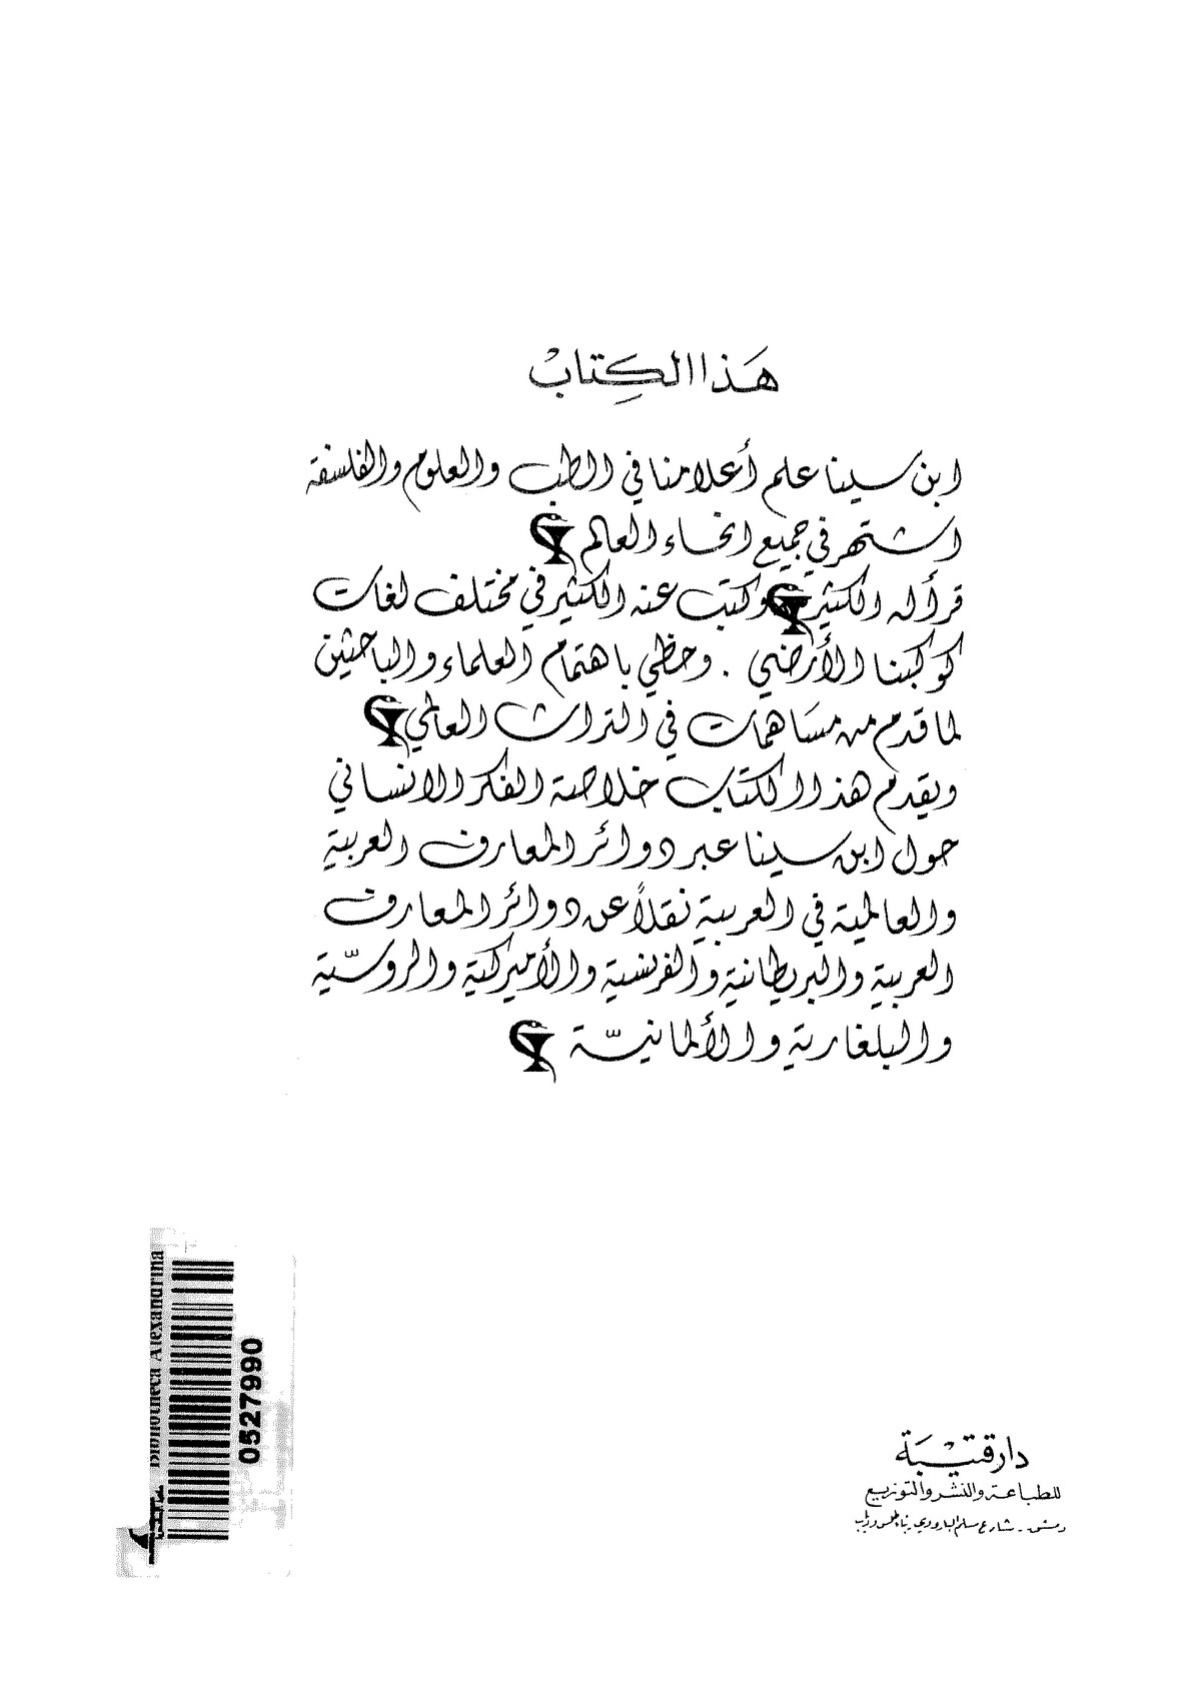 هَذا الكِتابْ
ابن سينا علم أعلامنا في الطب والعلوم والفلسفة
اشتهر في جميع انحاء العالم
قرأ له الكثير وكتب عنه الكثير في مختلف لغات
كوكبنا الأرضي . وحظي باهتمام العلماء والباحثين
لما قدم من مسَاهمات في التراث العالمي
ويقدم هذا الكتاب خلاصة الفكر الانساني
حول ابن سينا عبر دوائر المعارف العربية
والعالمية في العربية نقلاً عن دوائر المعارف
العربية والبريطانية والفرنسية والأميركية والروسّية
والبلغارية والألمانيّة
Bibliotheca Alexandrina
0527990
دار قتيْبَة
للطباعة والنشر والتوزيع
دمشق - شارع مسلم البارودي